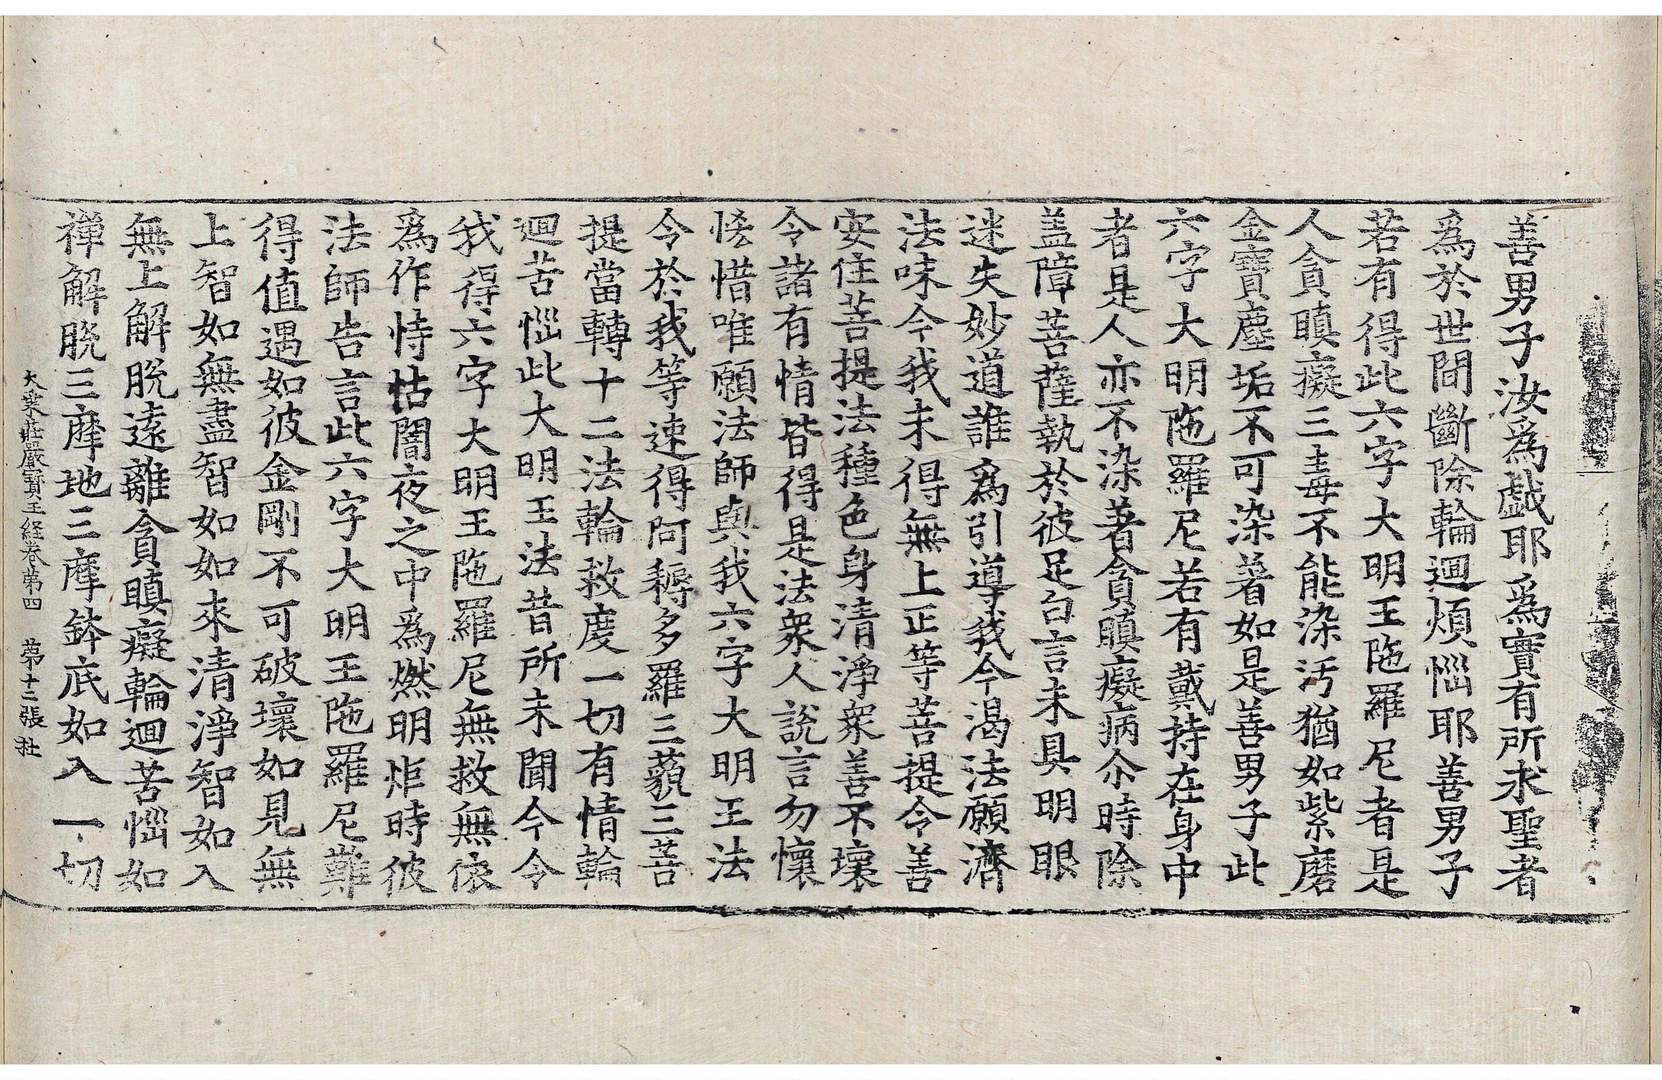 善男子汝爲戯耶爲實有所求聖者
爲於世間斷除輪迴煩惱耶善男子
若有得此六字大明王陁羅尼者是
人貪瞋癡三毒不能染汚猶如紫磨
金寶塵垢不可染著如是善男子此
六字大明陁羅尼若有戴持在身中
者是人亦不染著貪瞋癡病尒時除
盖障菩薩執於彼足白言未具明眼
迷失妙道誰爲引導我今渴法願濟
法味今我未得無上正等菩提令善
安住菩提法種色身清淨衆善不壞
令諸有情皆得是法衆人說言勿懷
恡惜唯願法師與我六字大明王法
令於我等速得阿耨多羅三藐三菩
提當轉十二法輪救度一切有情輪
迴苦惱此大明王法昔所未聞今令
我得六字大明王陁羅尼無救無依
爲作恃怙闇夜之中爲燃明炬時彼
法師告言此六字大明王陁羅尼難
得值遇如彼金剛不可破壞如見無
上智如無盡智如如來清淨智如入
無上解脫遠離貪瞋癡輪迴苦惱如
禅解脫三摩地三摩鉢底如入一切
大乘莊嚴寶王経卷第四 第十二張 杜